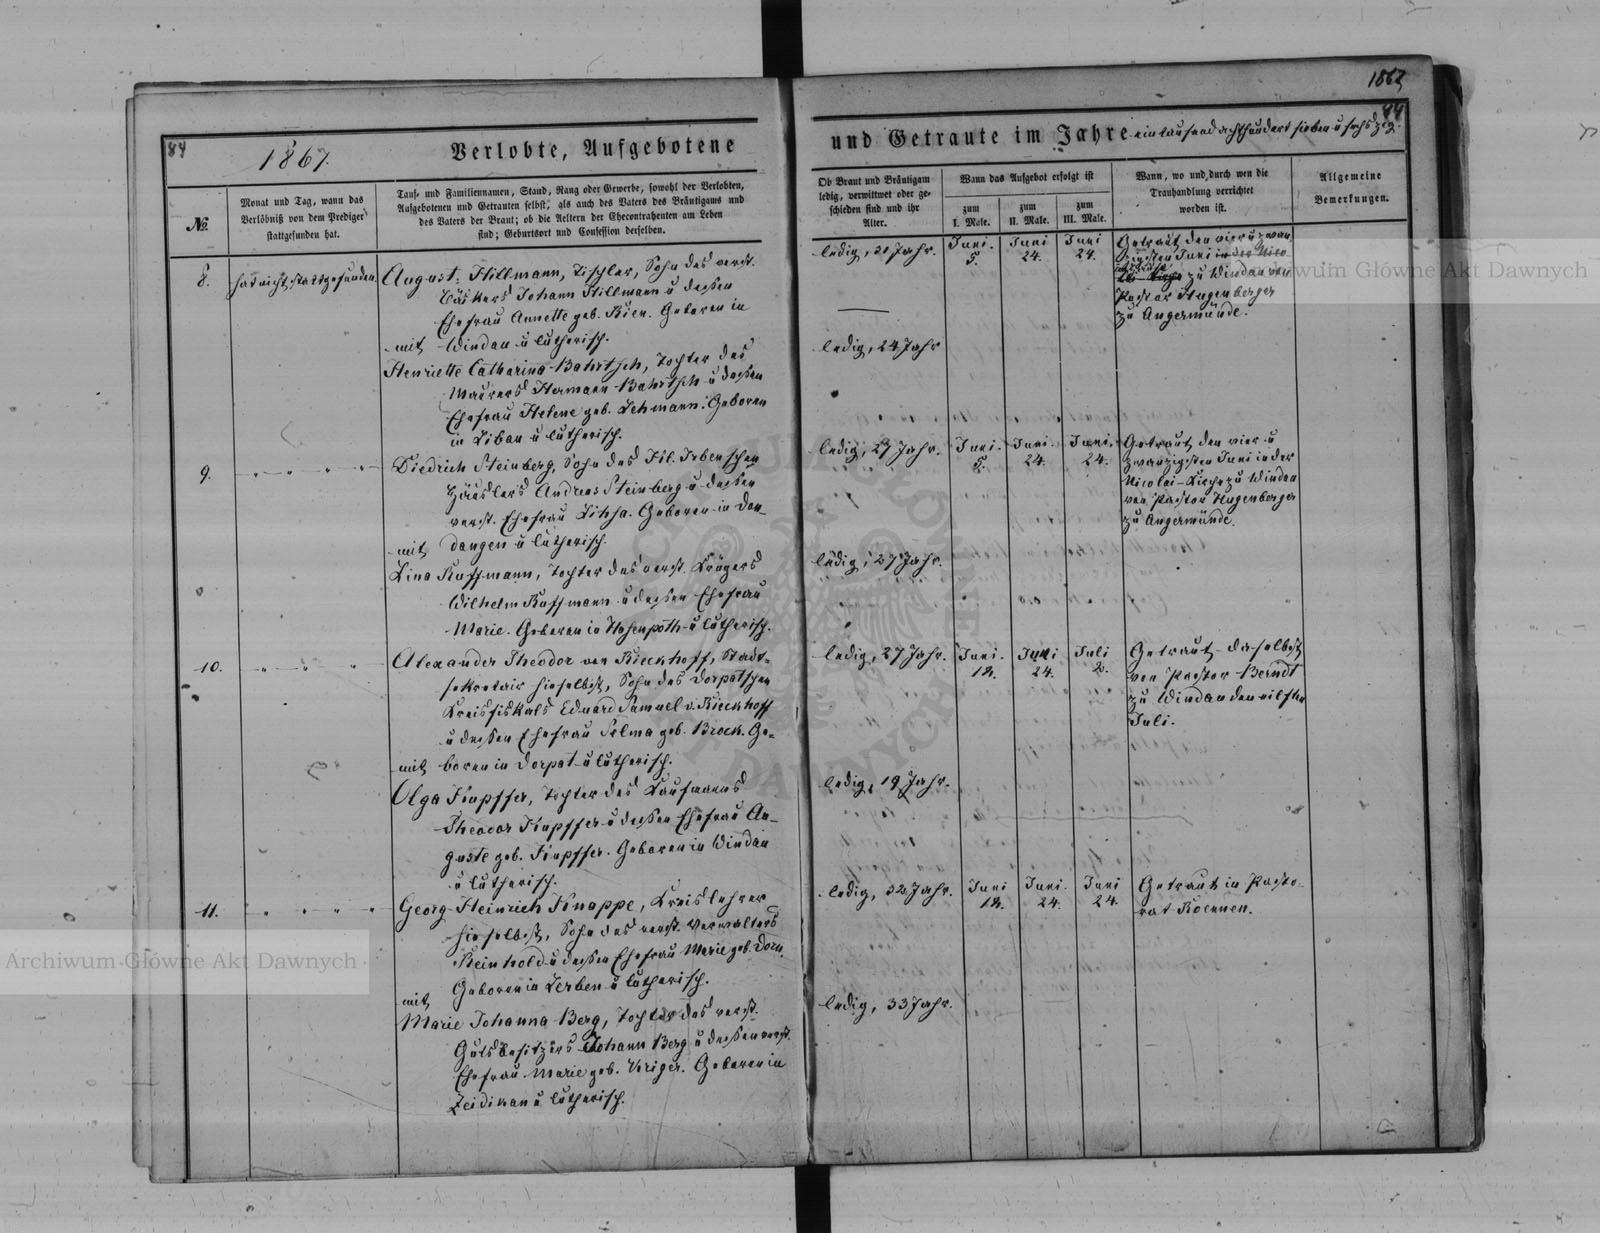 1867
84
84
1867.
Verlobte, Aufgebotene
und Getraute im Jahre eintausendachthundert sieben u sechszig.
№.
Monat und Tag, wann das
Verlöbniß von dem Prediger
stattgefunden hat.
Tauf- und Familiennamen, Stand, Rang oder Gewerbe, sowohl der Verlobten,
Aufgebotenen und Getrauten selbst, als auch des Vaters des Bräutigams und
des Vaters der Braut; ob die Aeltern der Ehecontrahenten am Leben
sind; Geburtsort und Confession derselben.
Ob Braut und Bräutigam
ledig, verwittwet oder ge-
schieden sind und ihr
Alter.
Wann das Aufgebot erfolgt ist
zum
I. Male.
zum
II. Male.
zum
III. Male.
Wann, wo und durch wen die
Trauhandlung verrichtet
worden ist.
Allgemeine
Bemerkungen.
8.
hat nicht stattgefunden
August Hillmann, Tischler, Sohn des verst.
Bäckers Johann Hillmann u dessen
Ehefrau Annette geb. Kien. Geboren in
mit Windau u lutherisch.
Henriette Catharina Bahrtsch, Tochter des
Maurers Hermann Bahrtsch u dessen
Ehefrau Helene geb. Lehmann. Geboren
in Libau u lutherisch.
ledig, 21 Jahr.
ledig, 24 Jahr
Juni.
5.
Juni
24.
Juni
24.
Getraut den vier u zwan
zigsten Juni in der Nico
zu Windau von
Pastor Hugenberger
zu Angermünde.
9.
Diedrich Steinberg, Sohn des Fil. Irbenschen
Häuslers Andreas Steinberg u dessen
verst. Ehefrau Lihsa. Geboren in Don-
mit dangen u lutherisch.
Lina Kuffmann, Tochter des verst. Krügers
Wilhelm Kuffmann u dessen Ehefrau
Marie. Geboren in Hasenpoth u lutherisch.
ledig, 27 Jahr.
ledig, 27 Jahr.
Juni.
5.
Juni.
24.
Juni.
24.
Getraut den vier u
zwanzigsten Juni in der
Nicolai-Kirche zu Windau
von Pastor Hugenberger
zu Angermünde.
10.
Alexander Theodor von Kieckhoff, Stadt-
sekretair hieselbst, Sohn des Dorpatschen
Kreisfiskals Eduard Samuel v. Kieckhoff
u dessen Ehefrau Selma geb. Brock. Ge-
mit boren in Dorpat u lutherisch.
Olga Knupffer, Tochter des Kaufmanns
Theodor Knupffer u dessen Ehefrau Au-
guste geb. Knupffer. Geboren in Windau
u lutherisch.
ledig, 27 Jahr.
ledig, 19 Jahr.
Juni.
18.
Juni
24.
Juli
2.
Getraut daselbst
von Pastor Berndt
zu Windau den eilften
Juli.
11.
Georg Heinrich Knappe, Kreislehrer
hieselbst, Sohn des verst. Verwalters
Reinhold u dessen Ehefrau Marie geb. Dorn.
Geboren in Serben u lutherisch.
mit
Marie Johanna Berg, Tochter des verst.
Gutsbesitzers Johann Berg u dessen verst.
Ehefrau Marie geb. Kriger. Geboren in
Zeidikan u lutherisch.
ledig, 32 Jahr.
ledig, 33 Jahr.
Juni
18.
Juni.
24.
Juni
24.
Getraut in Pasto-
rat Roennen.
Archiwum Główne Akt Dawnych
Archiwum Główne Akt Dawnych